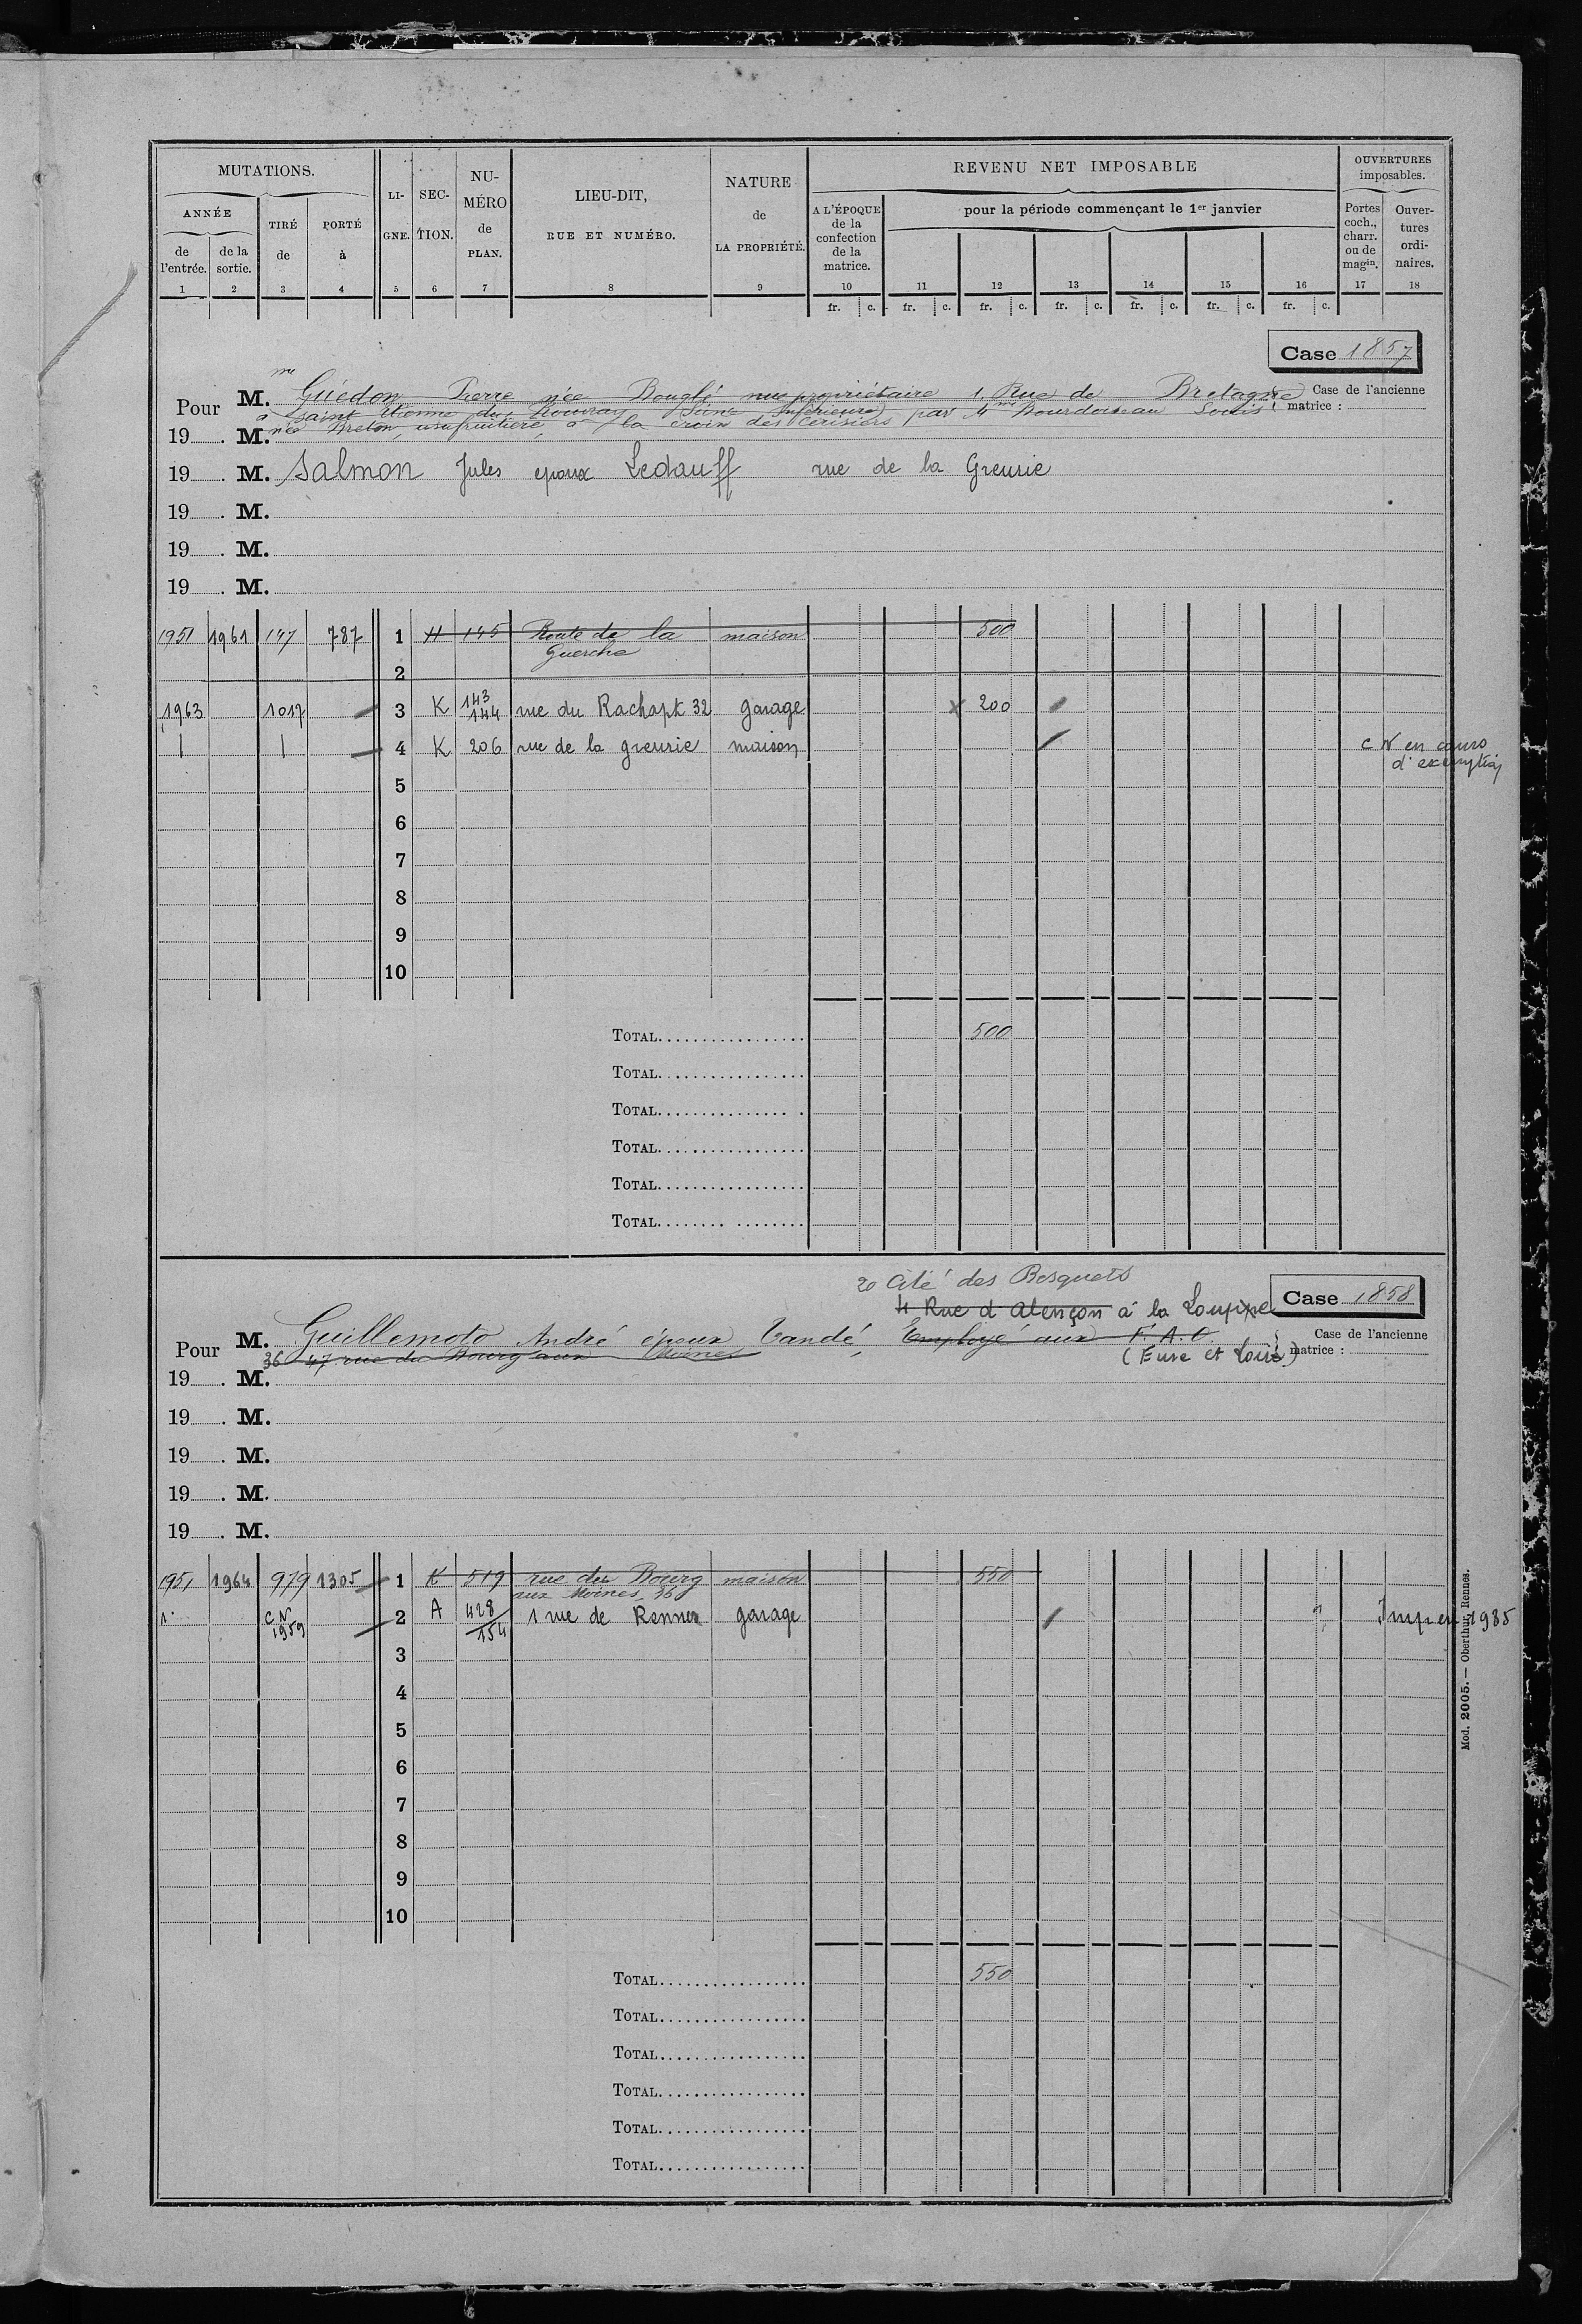 MUTATIONS.
ANNÉE
de l'entrée.
de la sortie.
TIRÉ de
PORTÉ à
LIGNE.
SECTION.
NUMÉRO de PLAN.
LIEU-DIT, RUE ET NUMÉRO.
NATURE de LA PROPRIÉTÉ.
REVENU NET IMPOSABLE
A L'ÉPOQUE de la confection de la matrice.
pour la période commençant le 1er janvier
OUVERTURES imposables.
Portes coch., charr. ou de magin.
Ouvertures ordinaires.
1 2 3 4 5 6 7 8 9 10 11 12 13 14 15 16 17 18
fr. c. fr. c. fr. c. fr. c. fr. c. fr. c. fr. c.
Case 1857
Pour M. me Guédon Pierre née Bouglé nue propriétaire 1, Rue de Bretagne
Case de l'ancienne matrice :
à Saint Etienne du Rouvray (Seine Inférieure) par Mme Bourdoiseau Louis
19 . M. née Breton, usufruitière, à la croix des Cerisiers
19 . M. Salmon Jules epoux Ledauff rue de la Greurie
19 . M.
19 . M.
19 . M.
1951 1961 147 787 1 H 145 Route de la Guerche maison 500
2
1963 1017 3 K 143 144 rue du Rachapt 32 garage x 200
| | 4 K 206 rue de la greurie maison CN en cours d'exemption
5
6
7
8
9
10
TOTAL 500
TOTAL
TOTAL
TOTAL
TOTAL
TOTAL
20 Cité des Bosquets
4 Rue d'Alençon à la Loupe
Case 1858
Pour M. Guillemoto André époux Vandé, Employé aux F.A.O.
Case de l'ancienne matrice :
36 47 rue du Bourg aux Moines (Eure et Loire)
19 . M.
19 . M.
19 . M.
19 . M.
19 . M.
1951 1964 979 1305 1 K 519 rue du Bourg aux Moines, 36 maison 550
CN 1959 2 A 428 154 1 rue de Rennes garage Imp en 1985
3
4
5
6
7
8
9
10
TOTAL 550
TOTAL
TOTAL
TOTAL
TOTAL
TOTAL
Mod. 2005. — Oberthur, Rennes.